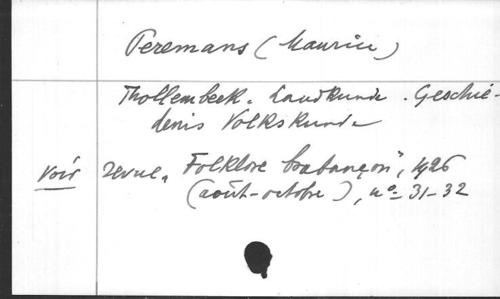 Peremans (Maurice)
Thollembeek. Landkunde. Geschie-
denis Volkskunde
Voir revue "Folklore brabançon", 1926
(août-octobre), nº 31-32